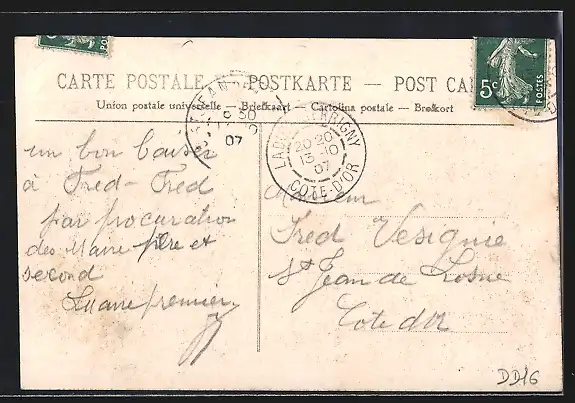 CARTE POSTALE — POSTKARTE — POST CA
Union postale universelle — Briefkaart — Cartolina postale — Brefkort
5c
POSTES
30
07
PERRIGNY
20 20
13 - 10
07
COTE-D'OR
un bon baiser
à Fred-Fred
par procuration
des père et
second
premier
Monsieur
Fred Vesignie
St Jean de Losne
Cote d'Or
DD16